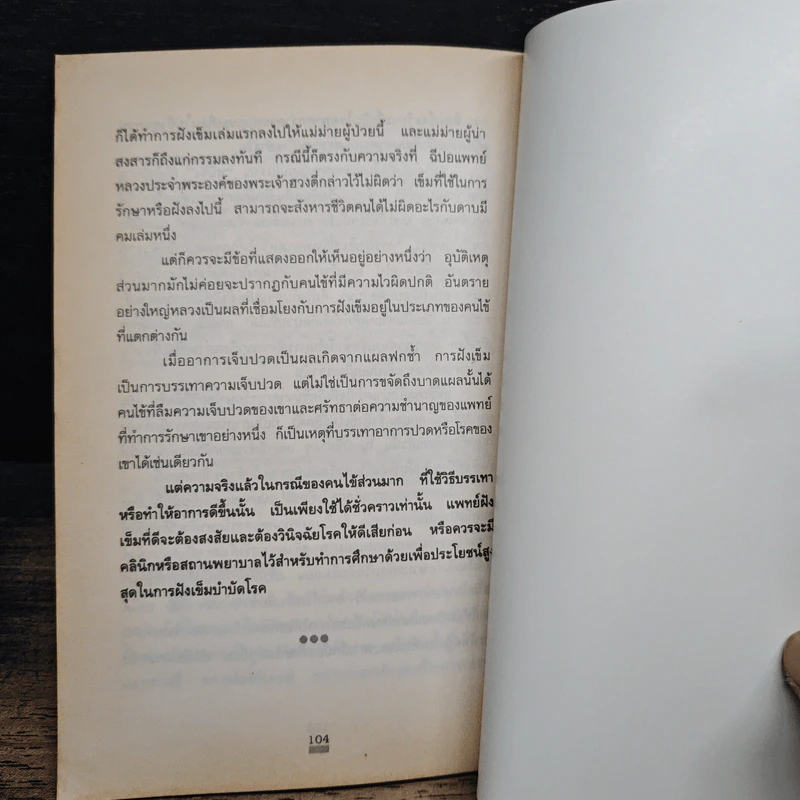 ก็ได้ทำการฝังเข็มเล่มแรกลงไปให้แม่ม่ายผู้ป่วยนี้ และแม่ม่ายผู้น่า
สงสารก็ถึงแก่กรรมลงทันที กรณีนี้ก็ตรงกับความจริงที่ ฉีปอแพทย์
หลวงประจำพระองค์ของพระเจ้าฮวงตี่กล่าวไว้ไม่ผิดว่า เข็มที่ใช้ในการ
รักษาหรือฝังลงไปนี้ สามารถจะสังหารชีวิตคนได้ไม่ผิดอะไรกับดาบมี
คมเล่มหนึ่ง
แต่ก็ควรจะมีข้อที่แสดงออกให้เห็นอยู่อย่างหนึ่งว่า อุบัติเหตุ
ส่วนมากมักไม่ค่อยจะปรากฏกับคนไข้ที่มีความไวผิดปกติ อันตราย
อย่างใหญ่หลวงเป็นผลที่เชื่อมโยงกับการฝังเข็มอยู่ในประเภทของคนไข้
ที่แตกต่างกัน
เมื่ออาการเจ็บปวดเป็นผลเกิดจากแผลฟกช้ำ การฝังเข็ม
เป็นการบรรเทาความเจ็บปวด แต่ไม่ใช่เป็นการขจัดถึงบาดแผลนั้นได้
คนไข้ที่ลืมความเจ็บปวดของเขาและศรัทธาต่อความชำนาญของแพทย์
ที่ทำการรักษาเขาอย่างหนึ่ง ก็เป็นเหตุที่บรรเทาอาการปวดหรือโรคของ
เขาได้เช่นเดียวกัน
แต่ความจริงแล้วในกรณีของคนไข้ส่วนมาก ที่ใช้วิธีบรรเทา
หรือทำให้อาการดีขึ้นนั้น เป็นเพียงใช้ได้ชั่วคราวเท่านั้น แพทย์ฝัง
เข็มที่ดีจะต้องสงสัยและต้องวินิจฉัยโรคให้ดีเสียก่อน หรือควรจะมี
คลินิกหรือสถานพยาบาลไว้สำหรับทำการศึกษาด้วยเพื่อประโยชน์สูง
สุดในการฝังเข็มบำบัดโรค
104